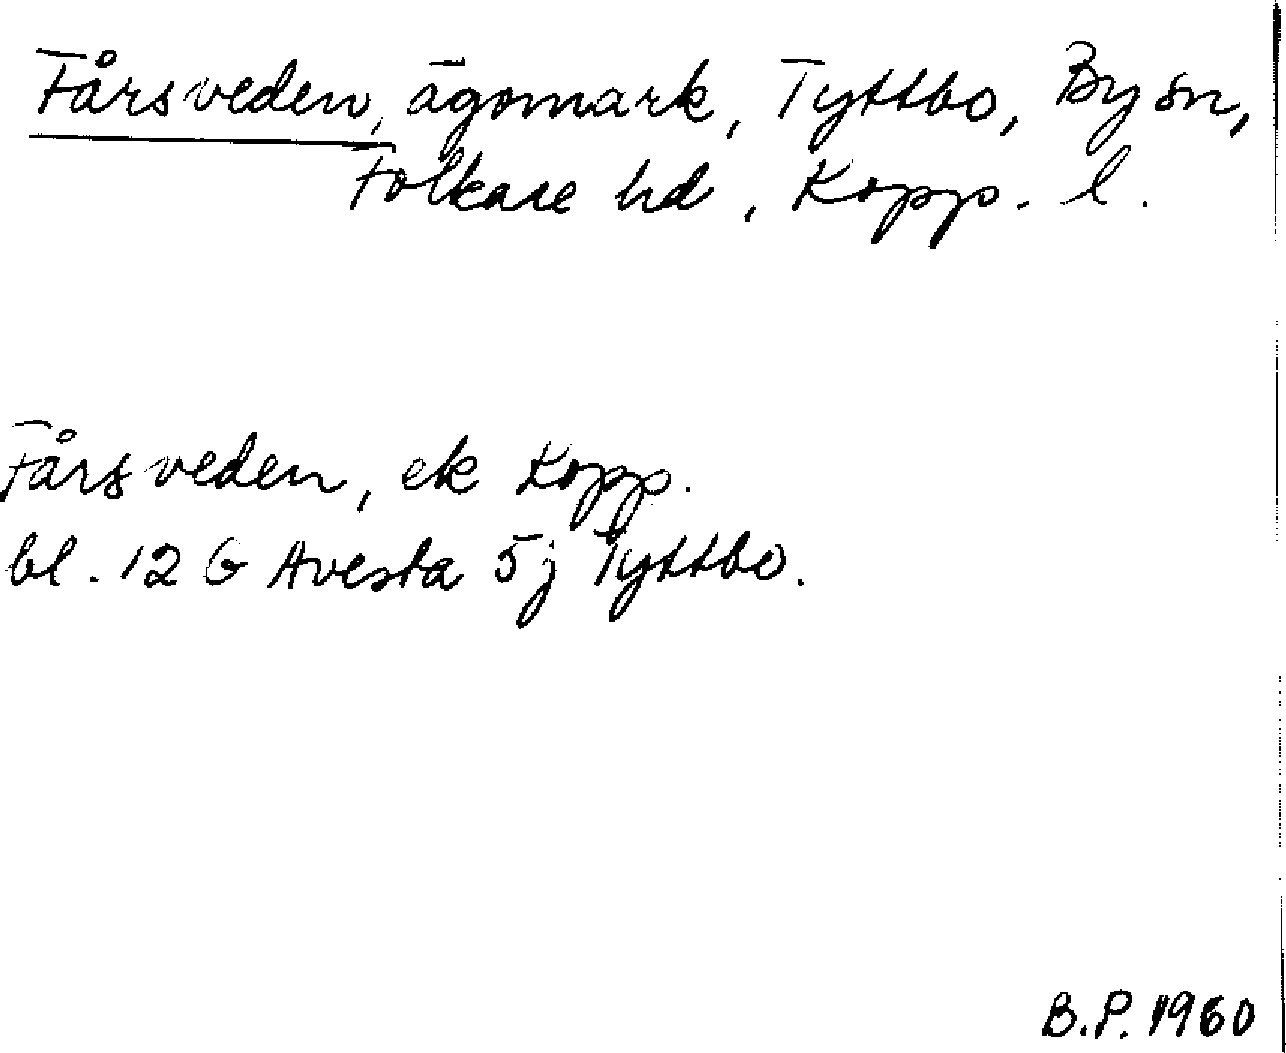 Fårsveden, ägomark, Tyttbo, By sn,
Folkare hd, Kopp. l.
Fårsveden, ek Kopp.
bl. 12 G Avesta 5j Tyttbo.
B.P. 1960